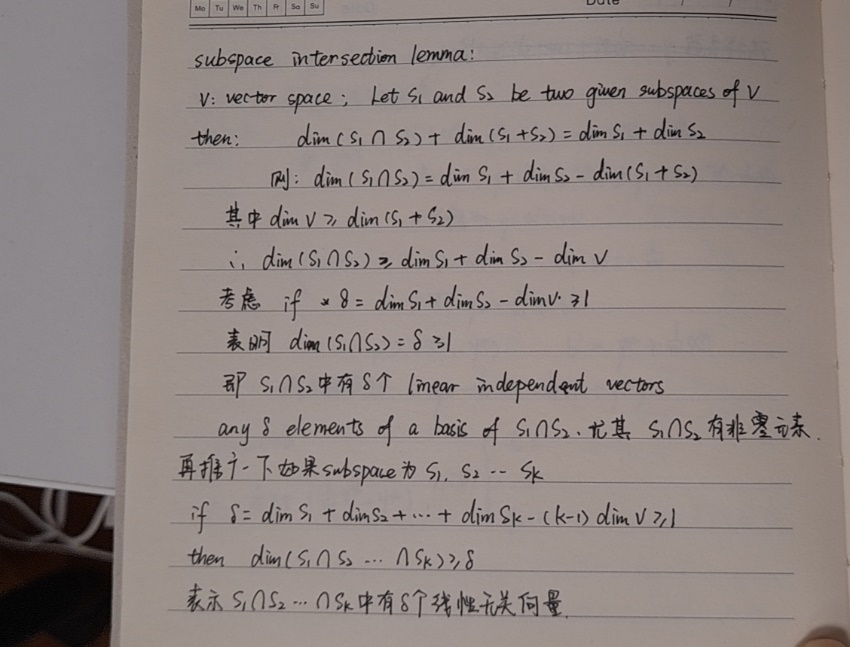 Mo Tu We Th Fr Sa Su
Date / /
subspace intersection lemma:
V: vector space; Let S₁ and S₂ be two given subspaces of V
then: dim(S₁∩S₂)+dim(S₁+S₂)=dim S₁+dim S₂
则: dim(S₁∩S₂)=dim S₁+dim S₂-dim(S₁+S₂)
其中 dim V ≥ dim(S₁+S₂)
∴ dim(S₁∩S₂) ≥ dim S₁+dim S₂-dim V
考虑 if δ=dim S₁+dim S₂-dim V ≥1
表明 dim(S₁∩S₂)=δ ≥1
即 S₁∩S₂中有δ个 linear independent vectors
any δ elements of a basis of S₁∩S₂. 尤其 S₁∩S₂有非零元素.
再推广一下如果subspace为 S₁, S₂ ⋯ Sk
if δ=dim S₁+dim S₂+⋯+dim Sk-(k-1)dim V ≥1
then dim(S₁∩S₂ ⋯ ∩Sk) ≥ δ
表示 S₁∩S₂⋯∩Sk中有δ个线性无关向量.